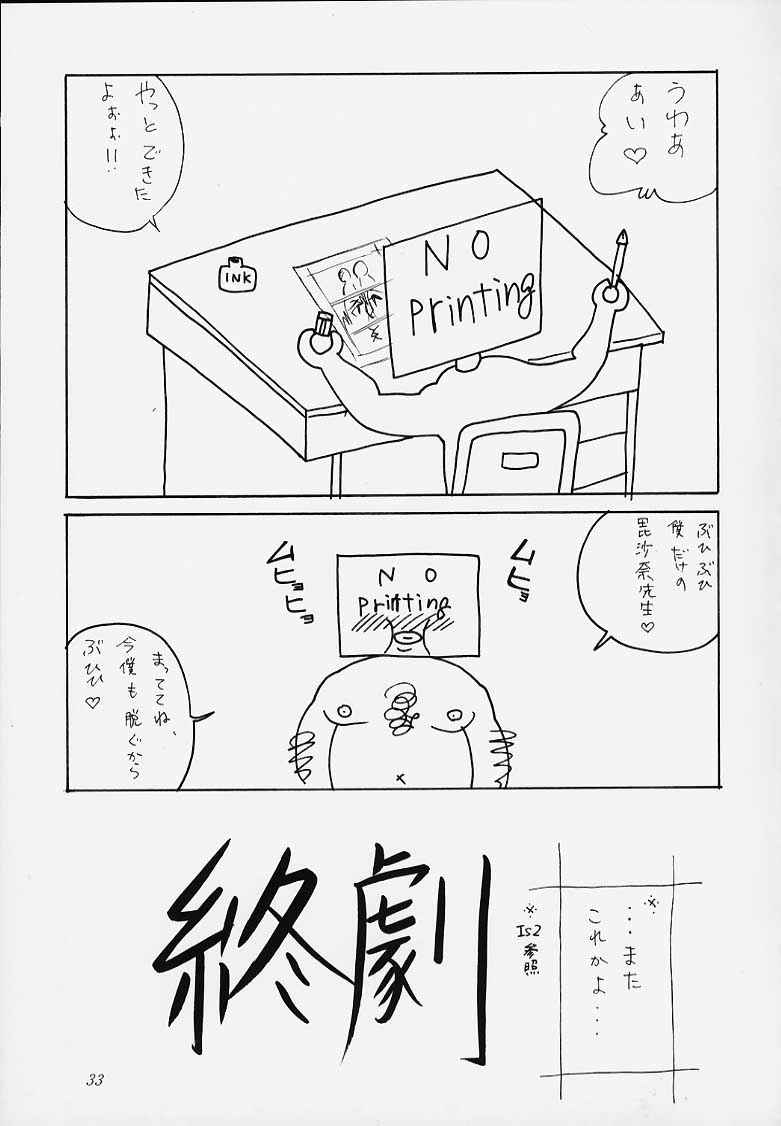 うわあ
あい♡
やっとできた
よぉぉ!!
INK
NO
Printing
ぶひぶひ
僕だけの
毘沙奈先生♡
ムヒョ
ムヒョヒョ
NO
Printing
まっててね、
今僕も脱ぐから
ぶひひ♡
※
…また
これかよ…
※Is2参照
終劇
33